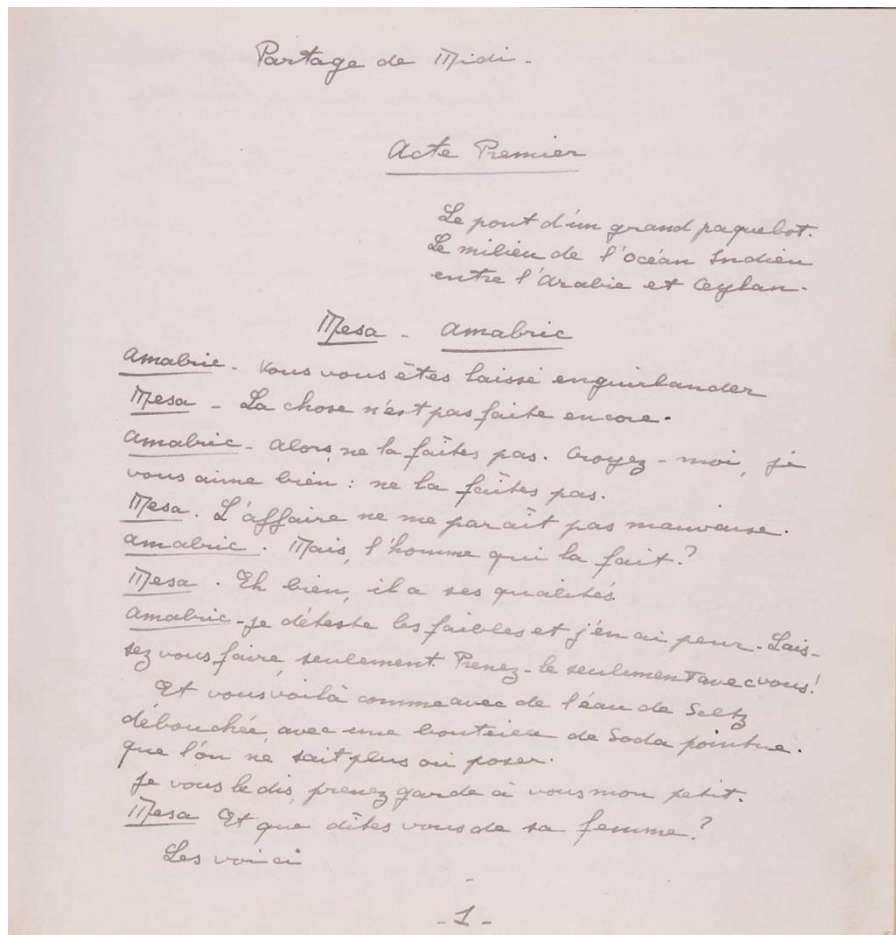 Partage de Midi -
Acte Premier
Le pont d'un grand paquebot.
Le milieu de l'Océan Indien
entre l'Arabie et Ceylan -
Mesa - Amabric
Amabric - Vous vous êtes laissé enguirlander
Mesa - La chose n'est pas faite encore.
Amabric - Alors, ne la faîtes pas. Croyez-moi, je
vous aime bien : ne la faîtes pas.
Mesa. L'affaire ne me paraît pas mauvaise.
Amabric. Mais, l'homme qui la fait ?
Mesa. Eh bien, il a ses qualités
Amabric - Je déteste les faibles et j'en ai peur - Lais-
sez vous faire, seulement. Prenez-le seulement avec vous !
Et vous voilà comme avec de l'eau de Seltz
débouchée, avec une bouteille de Soda pointue.
que l'on ne sait plus où poser.
Je vous le dis, prenez garde à vous mon petit.
Mesa Et que dîtes vous de sa femme ?
Les voici
- 1 -